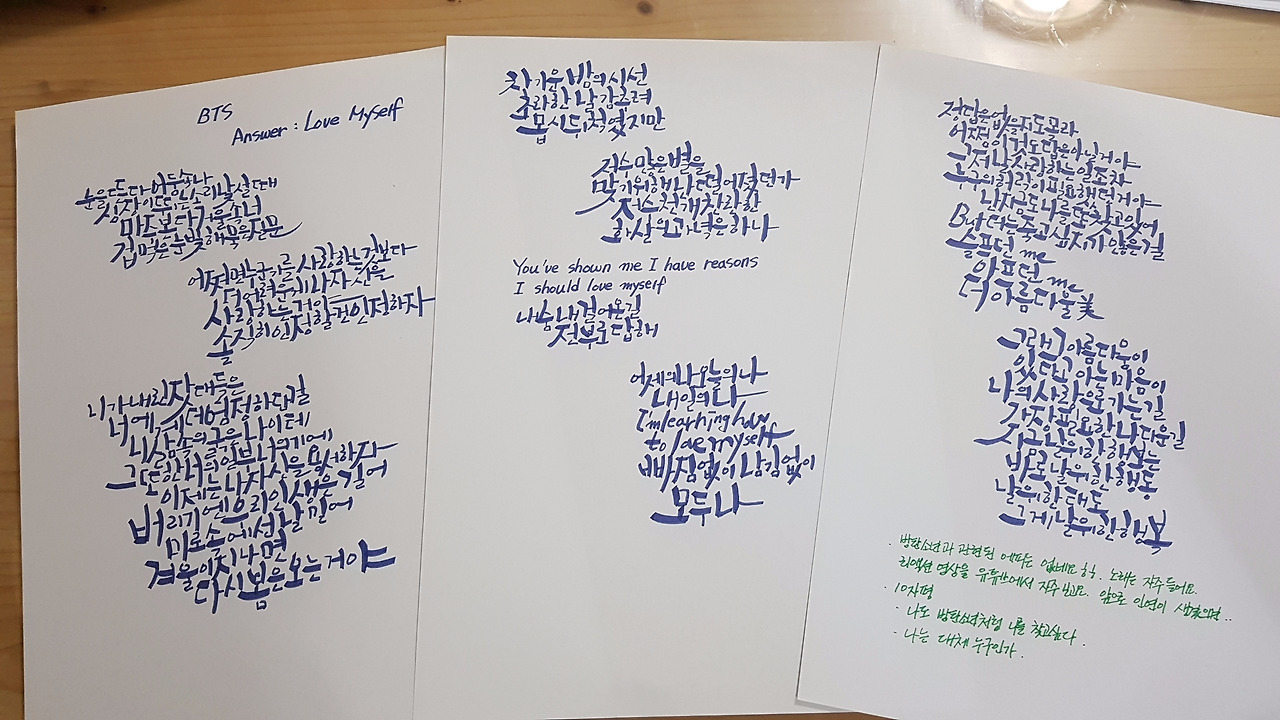 BTS
Answer : Love Myself
눈을 뜬다 어둠 속 나
심장이 뛰는 소리 낯설 때
마주 본다 거울 속 너
겁먹은 눈빛 해묵은 질문
어쩌면 누군가를 사랑하는 것보다
더 어려운 게 나 자신을
사랑하는 거야
솔직히 인정할 건 인정하자
니가 내린 잣대들은
너에게 더 엄격하단 걸
니 삶 속의 굵은 나이테
그 또한 너의 일부 너이기에
이제는 나 자신을 용서하자
버리기엔 우리 인생은 길어
미로 속에선 날 믿어
겨울이 지나면
다시 봄은 오는 거야
차가운 밤의 시선
초라한 날 감추려
몹시 뒤척였지만
저 수많은 별을
맞기 위해 난 떨어졌던가
저 수천 개 찬란한
화살의 과녁은 나 하나
You've shown me I have reasons
I should love myself
내 숨 내 걸어온 길
전부로 답해
어제의 나 오늘의 나
내일의 나
I'm learning how
to love myself
빠짐없이 남김없이
모두 나
정답은 없을지도 몰라
어쩜 이것도 답은 아닌 거야
그저 날 사랑하는 일조차
누구의 허락이 필요했던 거야
나는 지금도 나를 또 찾고 있어
But 더는 죽고 싶지가 않은 걸
슬프던 me
아프던 me
더 아름다울 美
그래 그 아름다움이
있다고 아는 마음이
나의 사랑으로 가는 길
가장 필요한 나다운 길
지금 날 위한 행보는
바로 날 위한 행동
날 위한 태도
그게 날 위한 행복
· 방탄소년과 관련된 에피는 없네요 하. 노래는 자주 들어요.
리액션 영상을 유튜브에서 자주 보고요. 앞으로 인연이 생겼으면..
· 10자평
- 나도 방탄소년처럼 나를 찾고싶다.
- 나는 대체 누구인가.